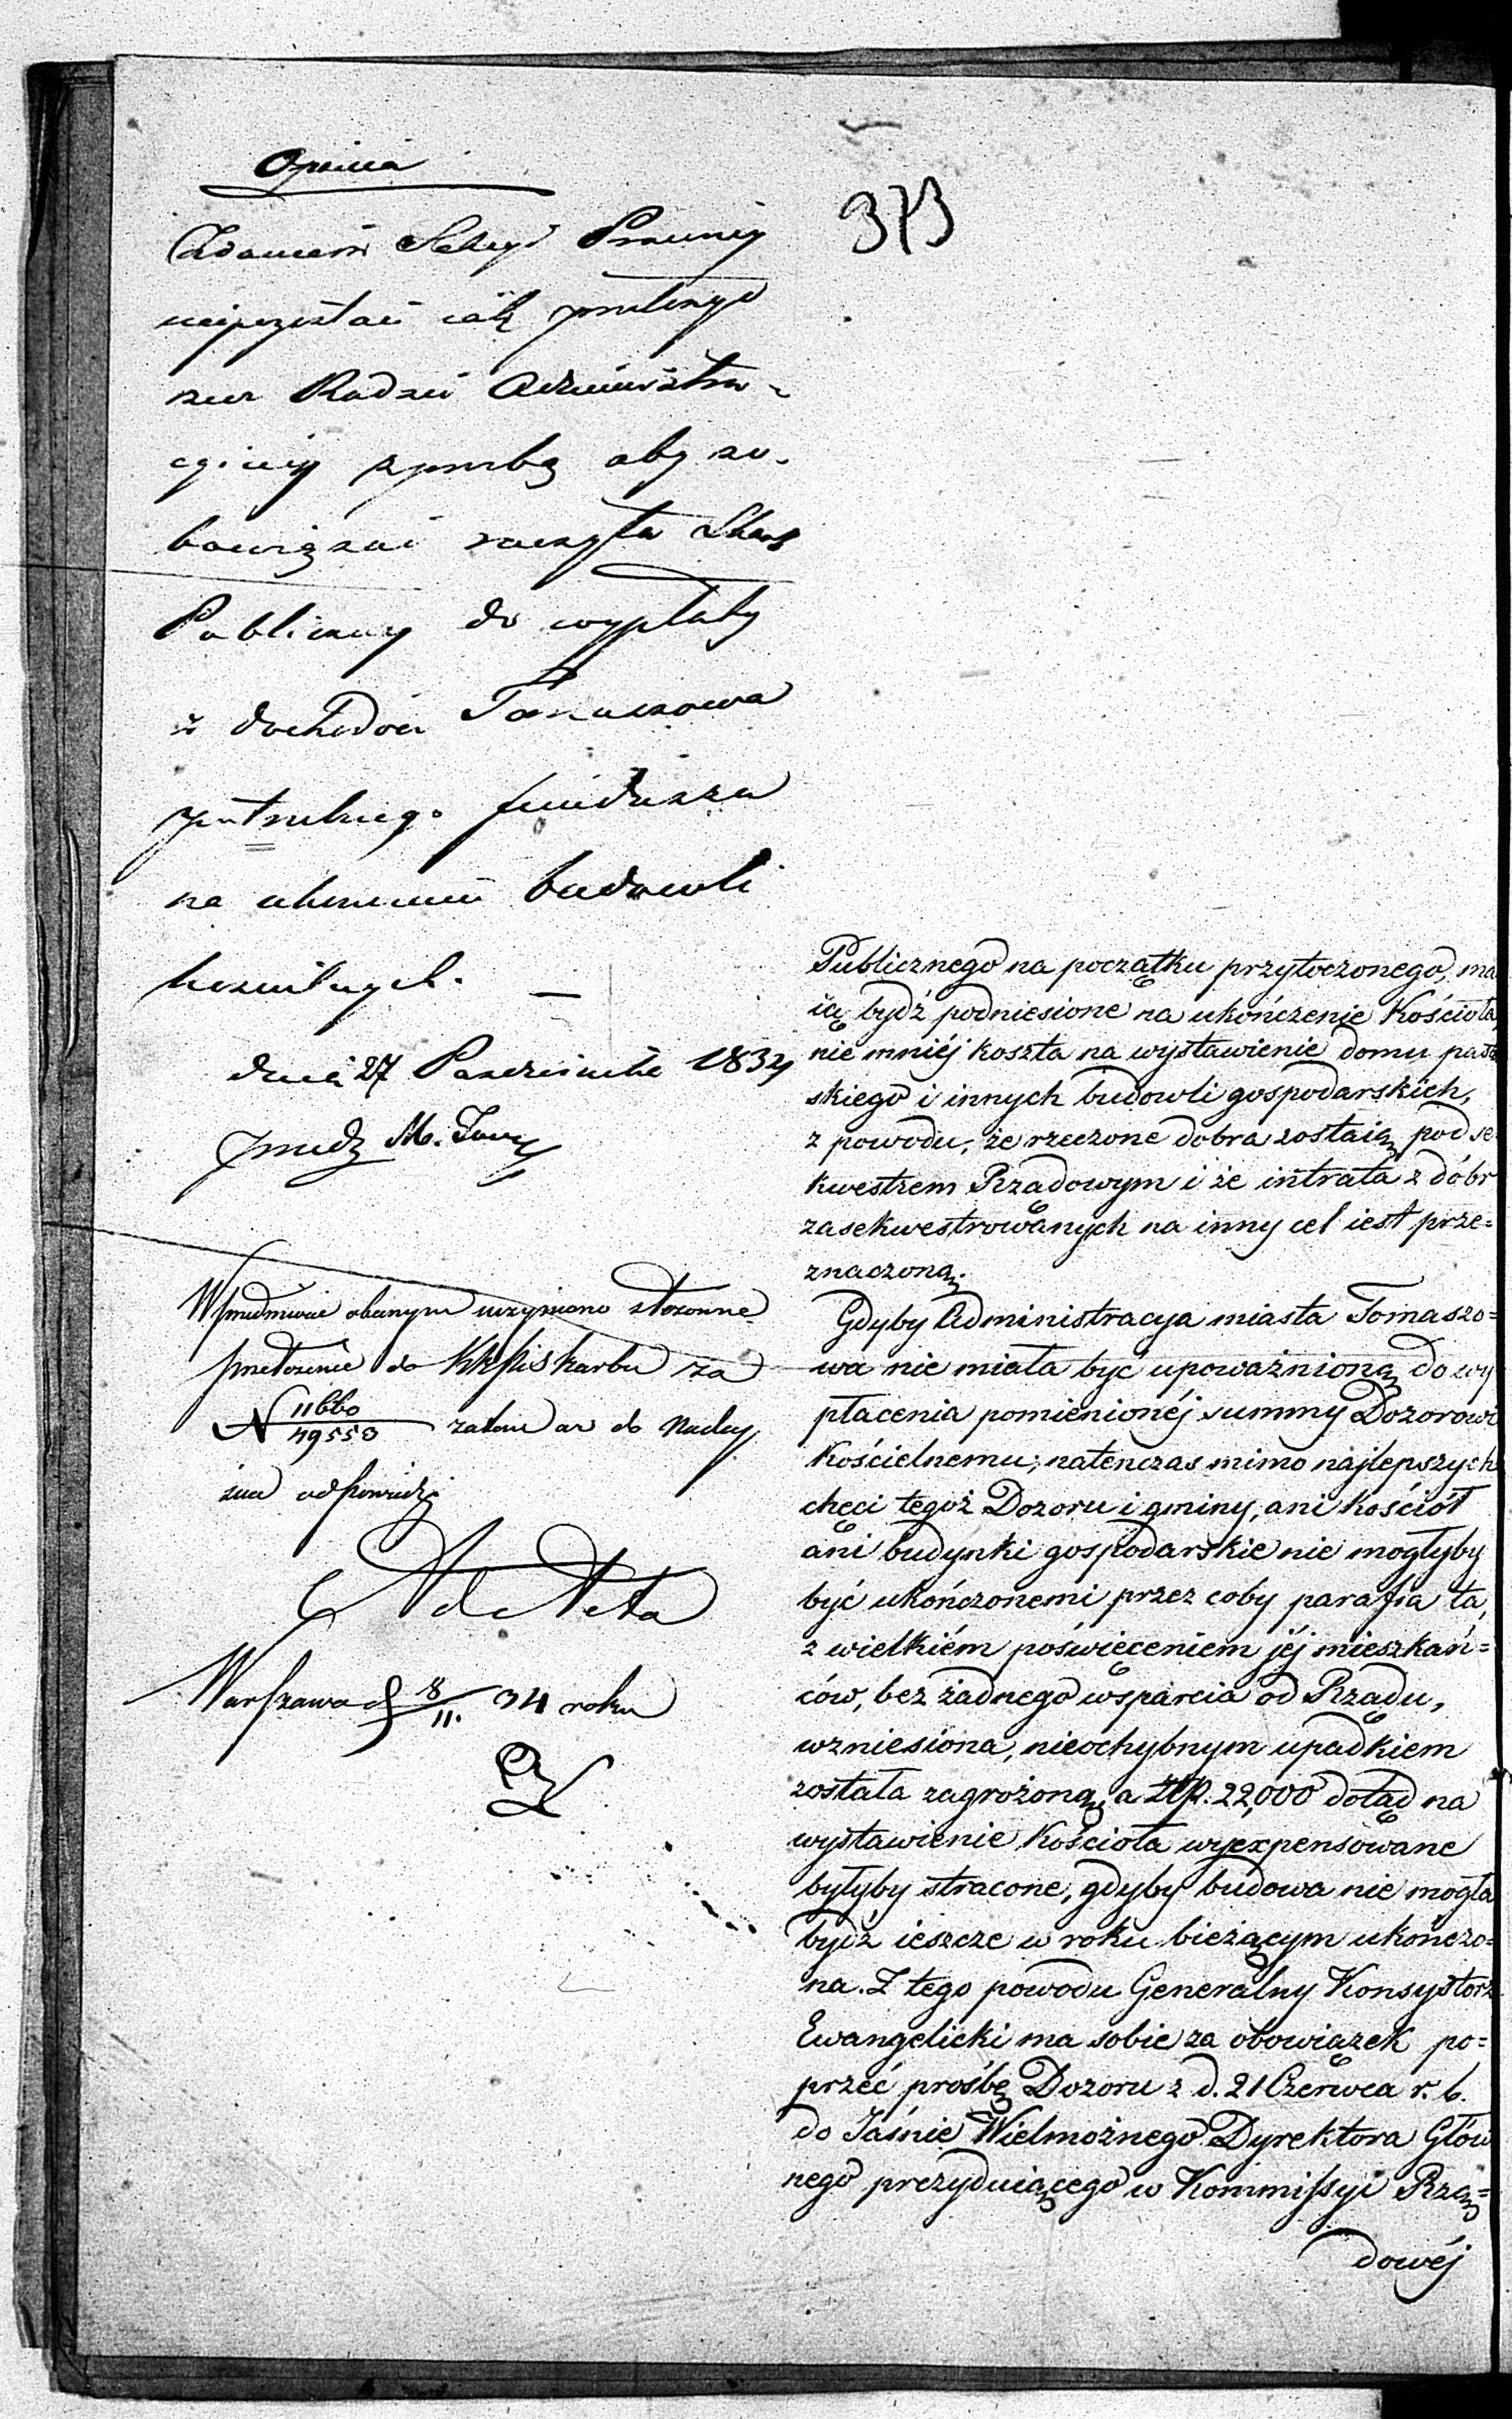 Opinia
373
Zdaniem Sekcyi Prawnej
rzecz Radzie Administra-
cyinej z prośbą aby zo-
bowiązać raczyła Skarb
Publiczny do wypłaty
z dochodów Tomaszowa
potrzebnego funduszu
na ukończenie budowli
kościelnych. —
dnia 27 Października 1834
W przedmiocie obecnym uczyniono stosowne
przełożenie do KRPiSkarbu za
N 11660/49550 zatem ad acta do nadey
ścia odpowiedzi
Ad Acta
Warszawa d 8/11. 34 roku
Publicznego na początku przytoczonego, ma
ią bydź podniesione na ukończenie Kościoła,
nie mniéj koszta na wystawienie domu pastor
skiego i innych budowli gospodarskich,
z powodu, że rzeczone dobra zostaią pod se-
kwestrem Rządowym i że intrata z dóbr
zasekwestrowanych na inny cel iest prze=
znaczoną.
Gdyby Administracya miasta Tomaszo=
wa nie miała być upoważnioną do wy
płacenia pomienionéj summy Dozorowi
Kościelnemu, natenczas mimo najlepszych
chęci tegoż Dozoru i gminy, ani Kościół
ani budynki gospodarskie nie mogłyby
być ukończonemi przez coby parafia ta,
z wielkiém poświęceniem jéj mieszkań=
ców, bez żadnego wsparcia od Rządu,
wzniesiona, nieochybnym upadkiem
została zagrożoną, a Złp. 22,000 dotąd na
wystawienie Kościoła wyexpensowane
byłyby stracone, gdyby budowa nie mogła
bydź ieszcze w roku bieżącym ukończo=
na. Z tego powodu Generalny Konsystorz
Ewangelicki ma sobie za obowiązek po=
przeć prośbę Dozoru z d. 21 Czerwca r. b.
do Jaśnie Wielmożnego Dyrektora Głów
nego prezyduiącego w Kommissyi Rzą=
dowéj